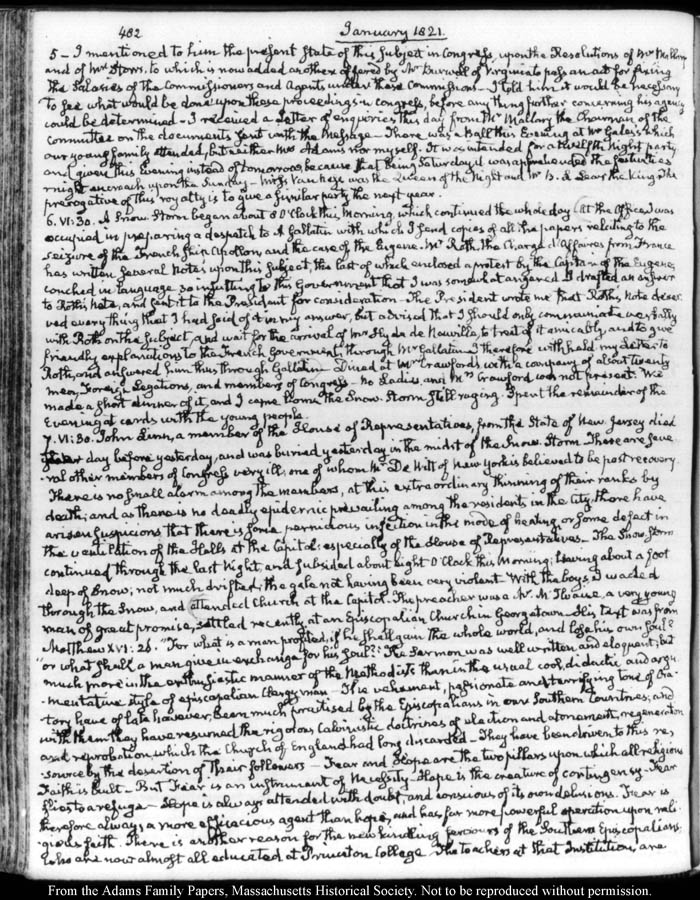 482 January 1821.
5 – I mentioned to him the present State of this Subject in Congress, upon the Resolutions of Mr Mallory
and of Mr Storrs, to which is now added another offered by Mr Burwell of Virginia to pass an act for fixing
the Salaries of the Commissioners and Agents under these Commissions – I told him it would be necessary
to see what would be done upon these proceedings in Congress, before any thing further concerning his agency
could be determined – I received a Letter of enquiries this day from Mr Mallary the Chairman of the
Committee on the documents sent with the Message – There was a Ball this Evening at Mr Gales's which
our young family attended, but neither Mrs Adams nor myself. It was intended for a twelfth Night party,
and given this Evening instead of tomorrow, because that being Saturday it was apprehended the festivities
might encroach upon the Sunday – was the Queen of the Night and Mr B. the King. The
prerogative of this royalty is to give a similar party the next year.
6. VI:30. A Snow Storm began about 8 O'Clock this Morning, which continued the whole day. At the Office I was
occupied in preparing a despatch to A Gallatin with which I send copies of all the papers relating to the
seizure of the French Ship Apollon, and the case of the Eugene. Mr Roth, the Chargé d'Affaires from France
has written several Notes upon this Subject, the last of which enclosed a protest by the Captain of the Eugene,
couched in language so insulting to this Government that I was somewhat angered. I drafted an answer
to Roth's Note, and sent it to the President for consideration – The President wrote me that Roth's Note deser-
ved every thing that I had said of it in my answer, but advised that I should only communicate verbally
with Roth on the Subject, and wait for the arrival of Mr Hyde de Neuville, to treat of it amicably, and to give
friendly explanations to the French Government, through Mr Gallatin. I therefore withheld my letter to
Roth, and answered him thus through Gallatin – Dined at Mr Crawford's with a company of about twenty
men, Foreign Legations, and members of Congress – no Ladies, and Mrs Crawford was not present. We
made a short dinner of it, and I came home the Snow-Storm still raging. Spent the remainder of the
Evening at cards with the young people.
7. VI:30. John Linn, a member of the House of Representatives, from the State of New Jersey died
day before yesterday, and was buried yesterday in the midst of the Snow-Storm. There are seve-
-ral other members of Congress very ill, one of whom Mr De Witt of New York is believed to be past recovery
There is no small alarm among the members, at this extraordinary thinning of their ranks by
death, and as there is no deadly epidemic prevailing among the residents in the City, there have
arisen suspicions that there is some pernicious infection in the mode of heating, or some defect in
the ventilation of the Halls at the Capitol: especially of the House of Representatives – The Snow Storm
continued through the last Night, and subsided about Eight O'Clock this Morning; leaving about a foot
deep of Snow; not much drifted, the gale not having been very violent. With the boys, I waded
through the Snow, and attended Church at the Capitol. The preacher was a Mr McIlvaine, a very young
man of great promise, settled recently at an Episcopalian Church in Georgetown – His text was from
Matthew XVI: 26. "For what is a man profited, if he shall gain the whole world, and lose his own Soul?
"or what shall a man give in exchange for his Soul?" The Sermon was well written and eloquent, but
much more in the enthusiastic manner of the Methodists than in the usual cool, didactic and argu-
-mentative style of episcopalian Clergyman – The vehement, passionate and terrifying tone of Ora-
tory have of late however, been much practised by the Episcopalians in our Southern Countries; and
with them they have resumed the rigorous Calvinistic doctrines of election and atonement, regeneration
and reprobation, which the Church of England had long discarded – They have been driven to this re-
-source by the desertion of their followers – Fear and Hope are the two pillars upon which all religious
Faith is built – But Fear is an instrument of Necessity – Hope is the creature of contingency – Fear
flies to a refuge – Hope is always attended with doubt, and conscious of its own delusions. Fear is
therefore always a more efficacious agent than hope, and has far more powerful operation upon reli-
-gious faith. There is another reason for the new kindling fervours of the Southern Episcopalians,
who are now almost all educated at Princeton College – The teachers at that Institution, are
From the Adams Family Papers, Massachusetts Historical Society. Not to be reproduced without permission.